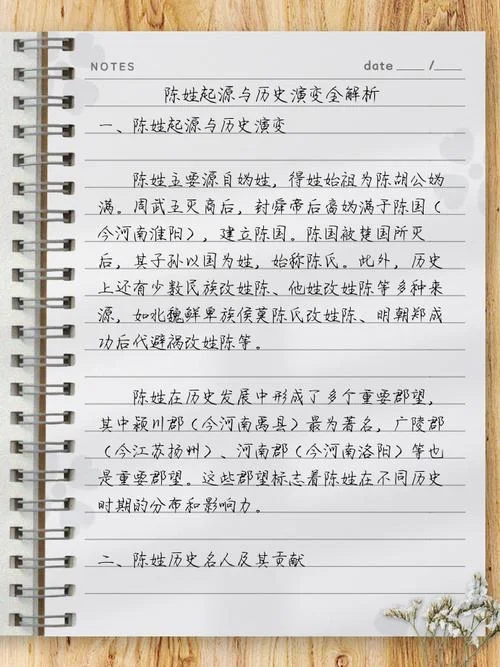 NOTES
date /
陈姓起源与历史演变全解析
一、陈姓起源与历史演变
陈姓主要源自妫姓，得姓始祖为陈胡公妫
满。周武王灭商后，封舜帝后裔妫满于陈国（
今河南淮阳），建立陈国。陈国被楚国所灭
后，其子孙以国为姓，始称陈氏。此外，历史
上还有少数民族改姓陈、他姓改姓陈等多种来
源，如北魏鲜卑族侯莫陈氏改姓陈、明朝郑成
功后代避祸改姓陈等。
陈姓在历史发展中形成了多个重要郡望，
其中颍川郡（今河南禹县）最为著名，广陵郡
（今江苏扬州）、河南郡（今河南洛阳）等也
是重要郡望。这些郡望标志着陈姓在不同历史
时期的分布和影响力。
二、陈姓历史名人及其贡献